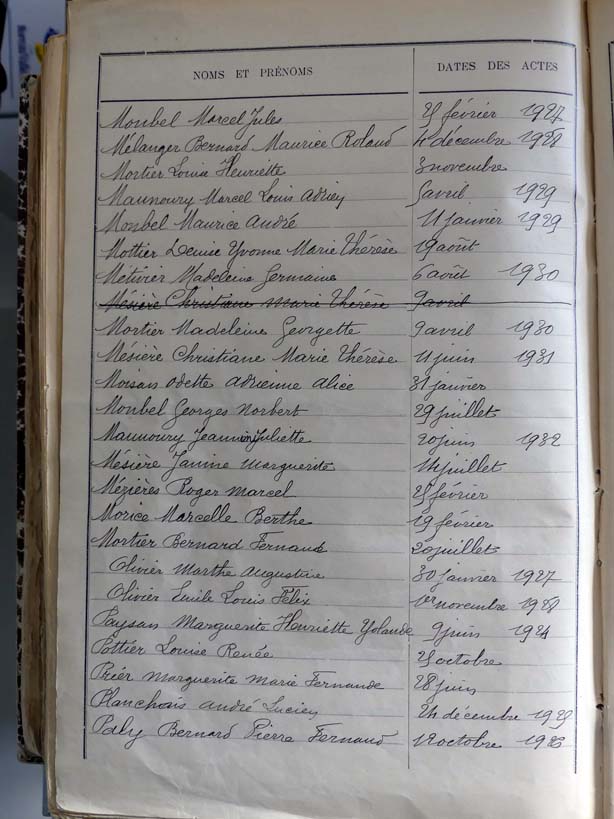 NOMS ET PRÉNOMS DATES DES ACTES
Monbel Marcel Jules 25 février 1927
Mélanger Bernard Maurice Roland 4 décembre 1928
Mortier Louise Henriette 3 novembre
Maunoury Marcel Louis Adrien 5 avril 1929
Monbel Maurice André 11 janvier 1929
Mottier Denise Yvonne Marie Thérèse 19 août
Métivier Madeleine Germaine 6 août 1930
Mésière Christiane Marie Thérèse 9 avril
Mortier Madeleine Georgette 9 avril 1930
Mésière Christiane Marie Thérèse 11 juin 1931
Moisan Odette Adrienne Alice 31 janvier
Monbel Georges Norbert 29 juillet
Maunoury Juliette 20 juin 1932
Mésière Janine Marguerite 14 juillet
Mézières Roger Marcel 25 février
Morice Marcelle Berthe 19 février
Mortier Bernard Fernand 20 juillet
Olivier Marthe Augustine 30 janvier 1927
Olivier Emile Louis Félix 1er novembre 1928
Paysan Marguerite Henriette Yolande 9 juin
Pottier Louise Renée 25 octobre
Prier Marguerite Marie Fernande 28 juin
Planchais André Lucien 24 décembre
Paly Bernard Pierre Fernand 12 octobre